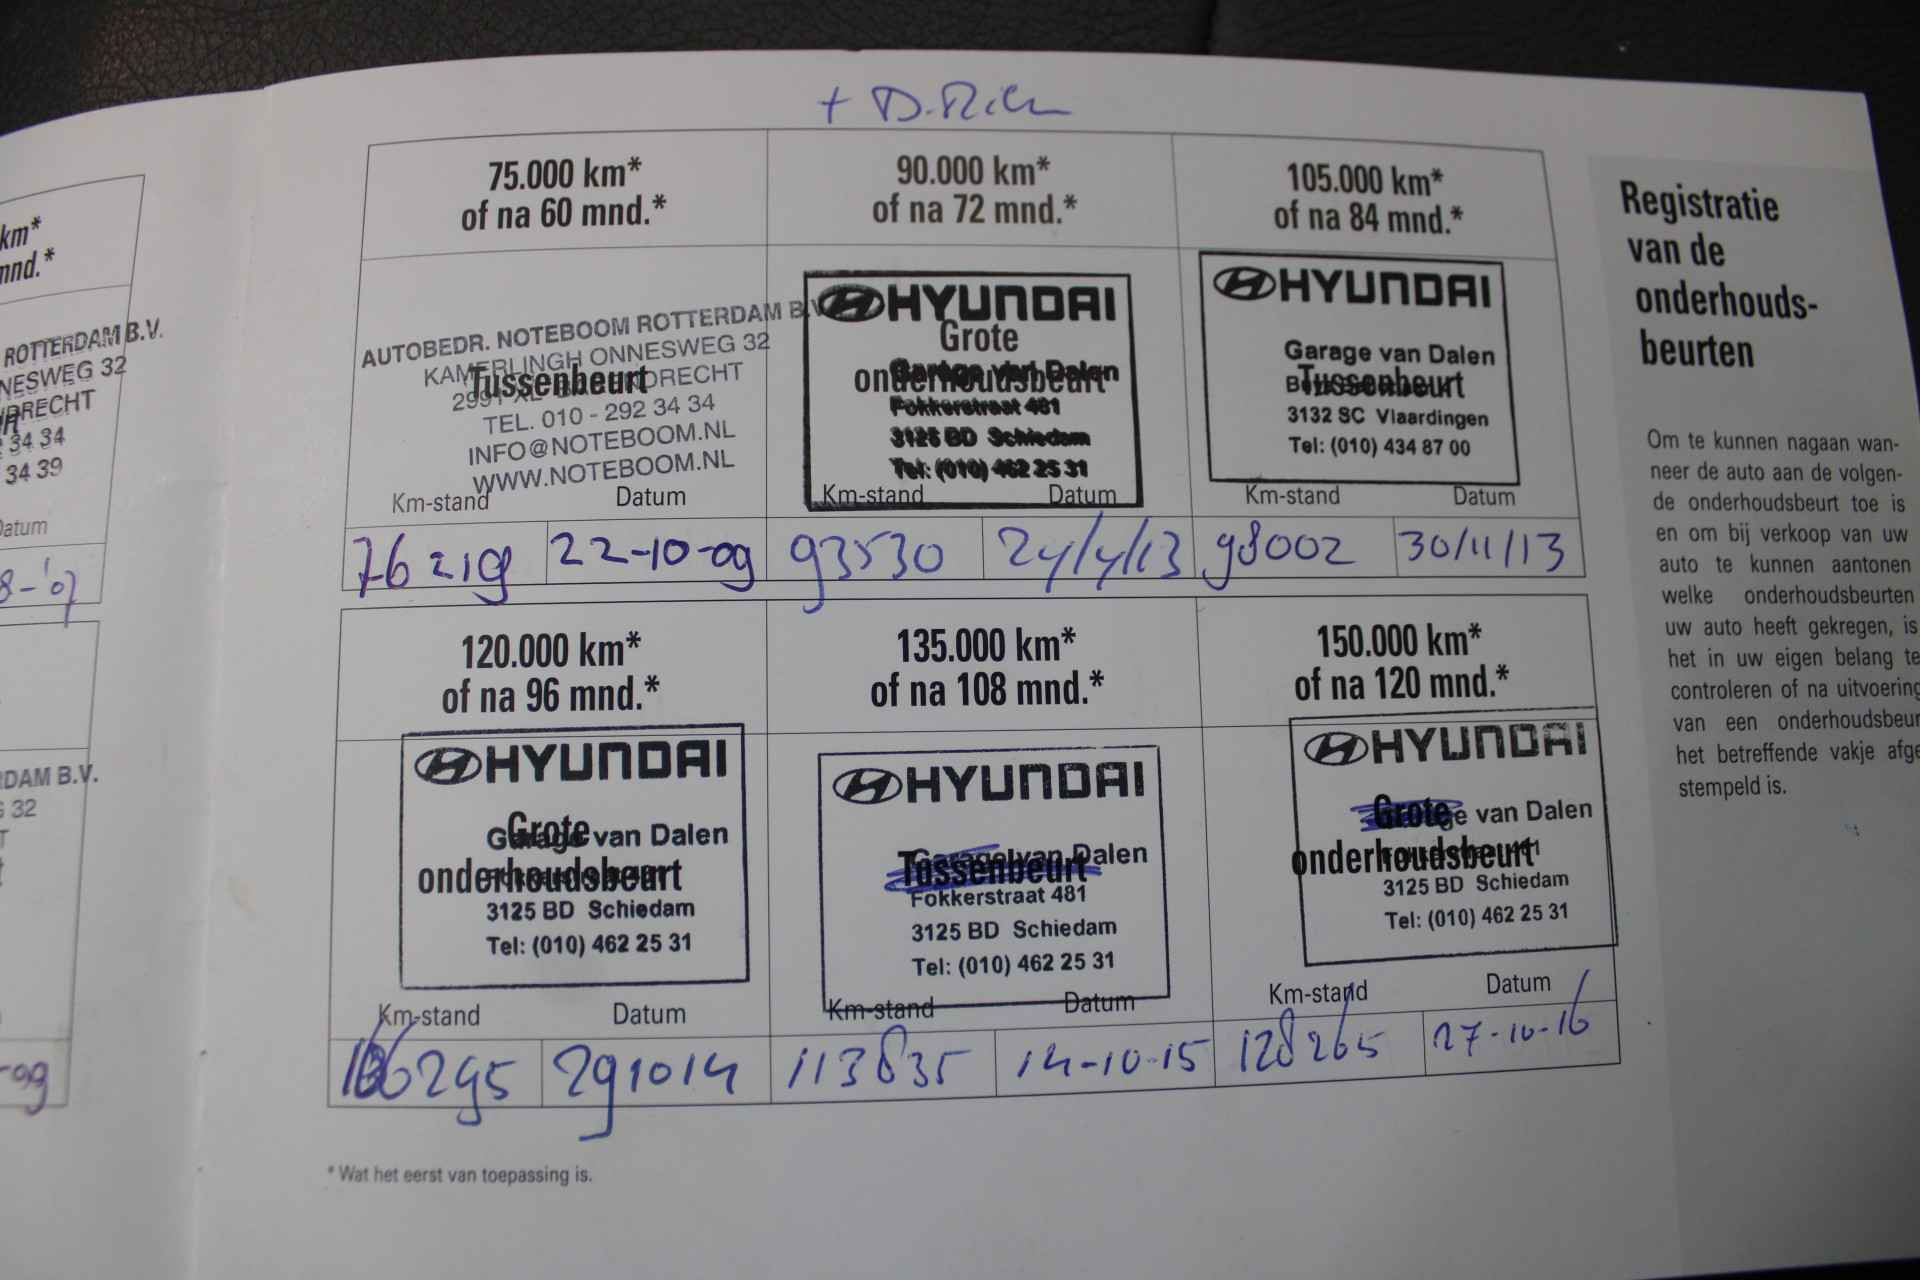 km*
mnd.*
ROTTERDAM B.V.
NESWEG 32
DRECHT
34 34
34 39
Datum
8-'07
RDAM B.V.
32
-09
+ D.
75.000 km*
of na 60 mnd.*
AUTOBEDR. NOTEBOOM ROTTERDAM B.V
KAMERLINGH ONNESWEG 32
Tussenbeurt
2991 XL BARENDRECHT
TEL. 010 - 292 34 34
INFO@NOTEBOOM.NL
WWW.NOTEBOOM.NL
Km-stand Datum
76219 22-10-09
90.000 km*
of na 72 mnd.*
HYUNDAI
Grote
onderhoudsbeurt
Garage van Dalen
Fokkerstraat 481
3125 BD Schiedam
Tel: (010) 462 25 31
Km-stand Datum
93530 24/4/13
105.000 km*
of na 84 mnd.*
HYUNDAI
Garage van Dalen
Tussenbeurt
3132 SC Vlaardingen
Tel: (010) 434 87 00
Km-stand Datum
98002 30/11/13
120.000 km*
of na 96 mnd.*
HYUNDAI
Grote
Garage van Dalen
onderhoudsbeurt
3125 BD Schiedam
Tel: (010) 462 25 31
Km-stand Datum
106295 291014
135.000 km*
of na 108 mnd.*
HYUNDAI
Garage van Dalen
Tussenbeurt
Fokkerstraat 481
3125 BD Schiedam
Tel: (010) 462 25 31
Km-stand Datum
113835 14-10-15
150.000 km*
of na 120 mnd.*
HYUNDAI
Grote
Garage van Dalen
onderhoudsbeurt
3125 BD Schiedam
Tel: (010) 462 25 31
Km-stand Datum
128265 27-10-16
* Wat het eerst van toepassing is.
Registratie
van de
onderhouds-
beurten
Om te kunnen nagaan wan-
neer de auto aan de volgen-
de onderhoudsbeurt toe is
en om bij verkoop van uw
auto te kunnen aantonen
welke onderhoudsbeurten
uw auto heeft gekregen, is
het in uw eigen belang te
controleren of na uitvoering
van een onderhoudsbeur
het betreffende vakje afge
stempeld is.